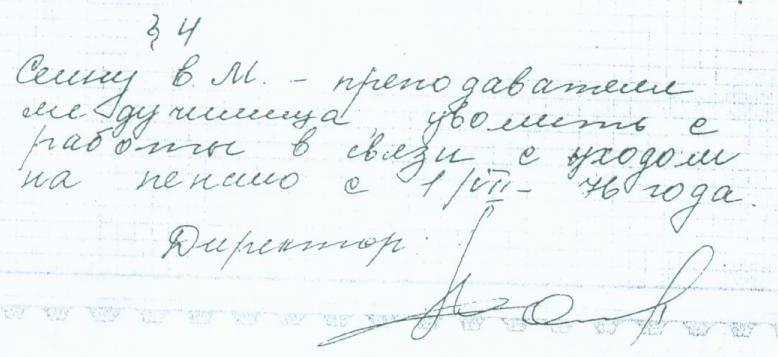 § 4
Сеину В.М. - преподавателя
медучилища, уволить с
работы в связи с уходом
на пенсию с 1/VII - 76 года.
Директор